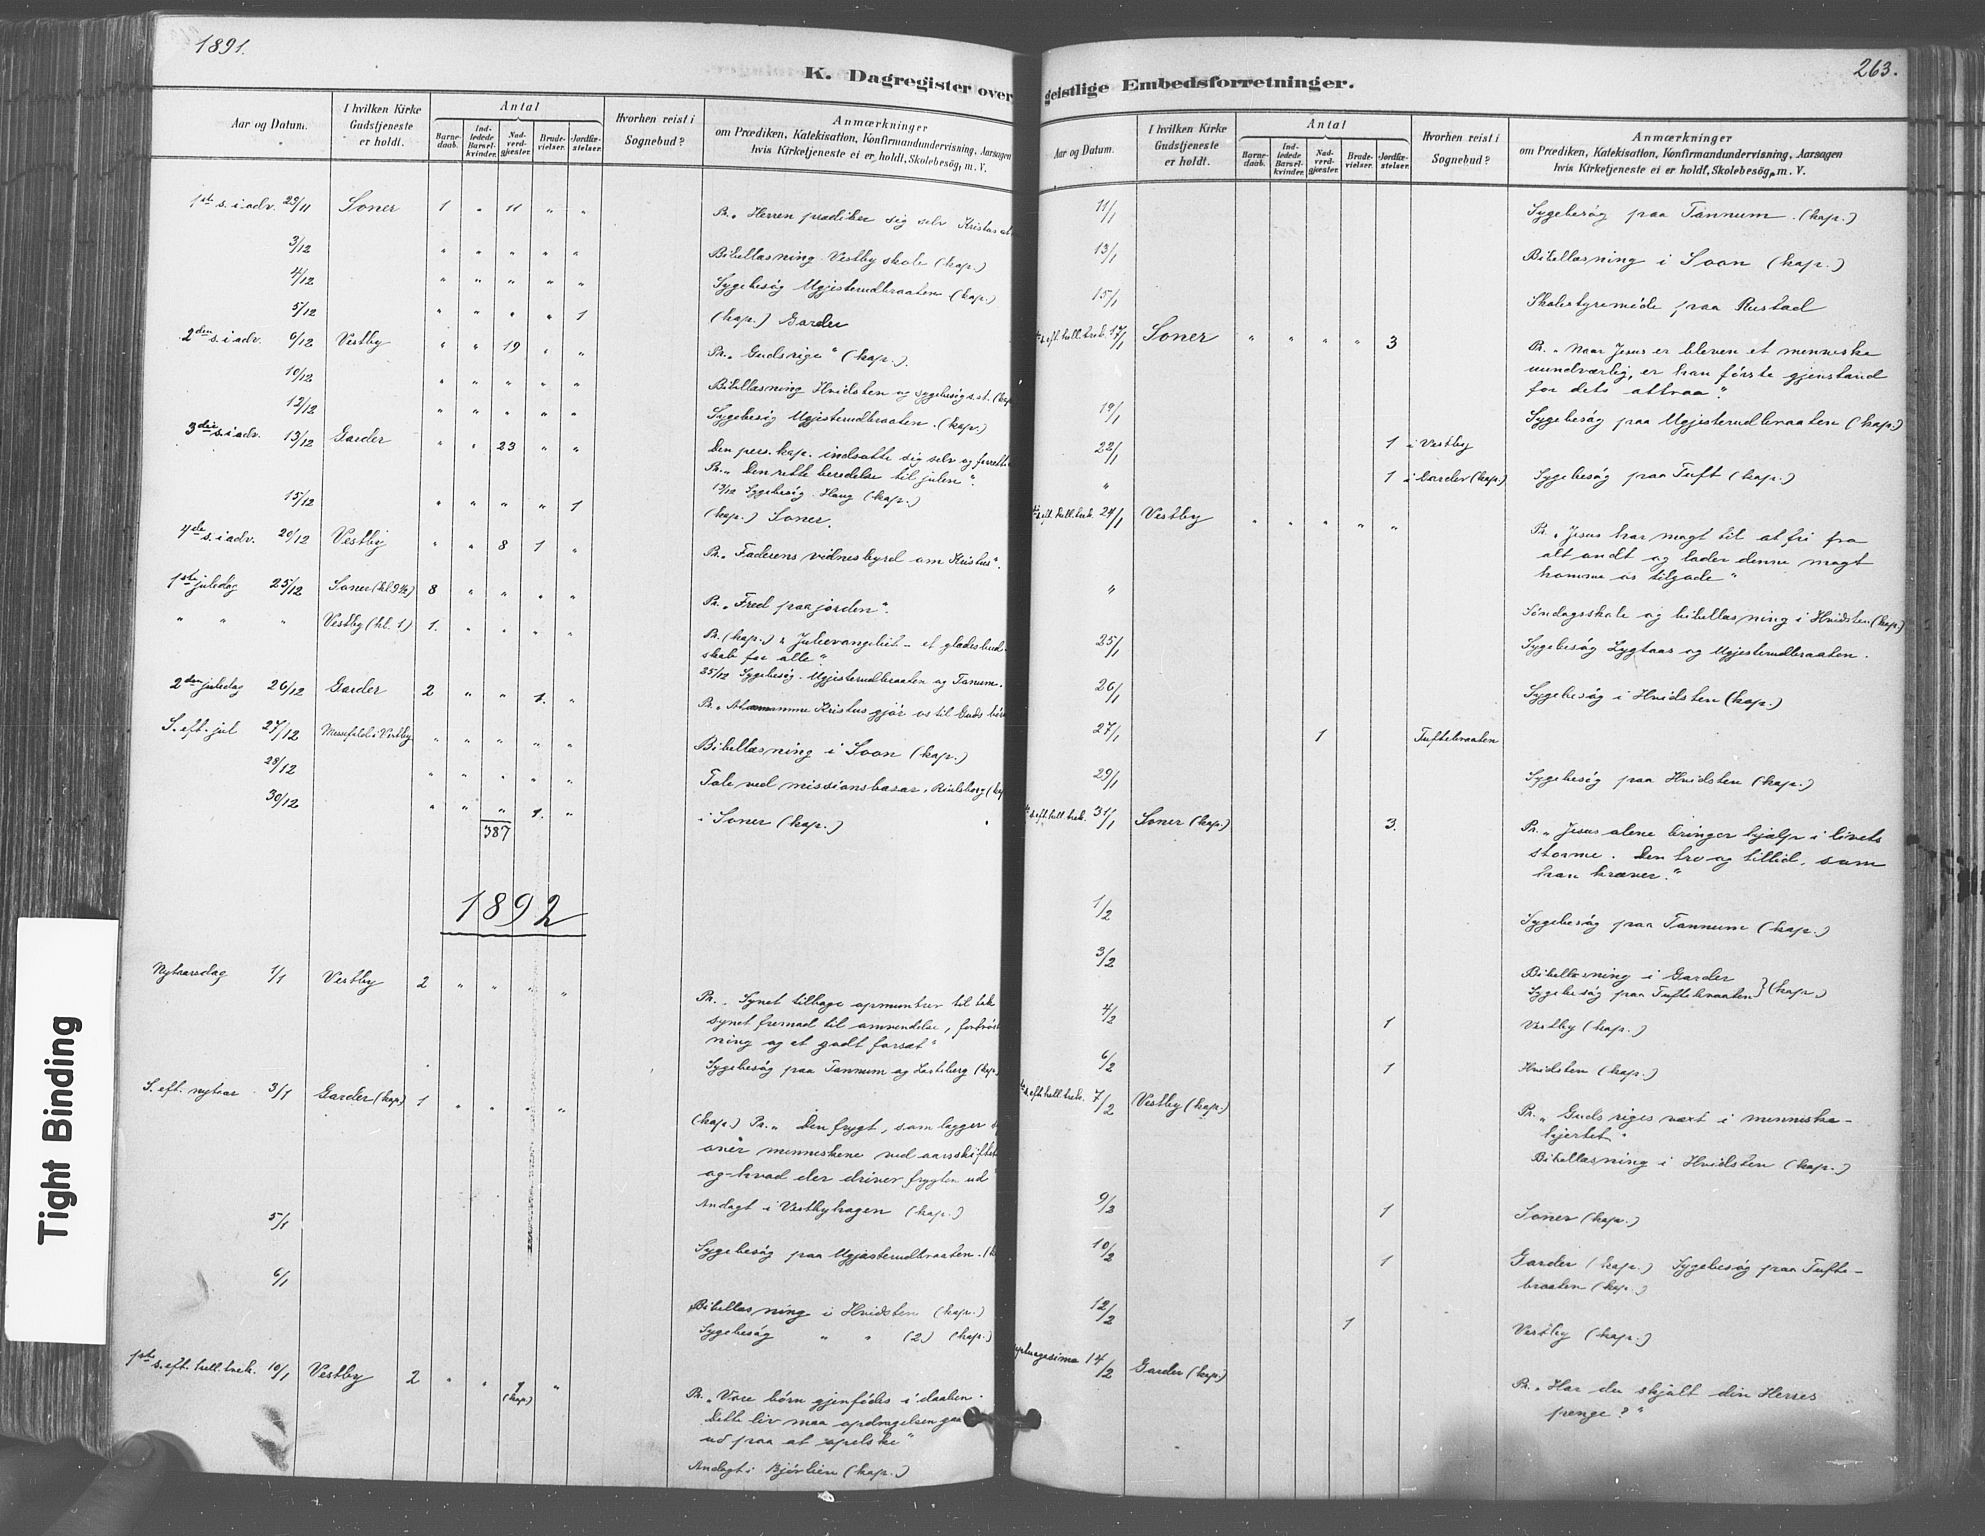 1891.
K. Dagregister over
Aar og Datum.
I hvilken Kirke Gudstjeneste er holdt.
Antal
Barne-daab.
Ind-ledede Barsel-kvinder.
Nad-verd-gjester.
Brude-vielser.
Jordfæ-stelser.
Hvorhen reist i Sognebud?
Anmærkninger
om Prædiken, Katekisation, Konfirmandundervisning, Aarsagen
hvis Kirketjeneste ei er holdt, Skolebesög, m. V.
1ste s. i adv. 29/11 Soner 1 " 11 " " Pr. „Herren prædiker sig selv Kristus
3/12 " " " " " Bibellæsning Vestby skole (kap.)
4/12 " " " " " Sygebesög Ugjisterudbraaten (kap.)
5/12 " " " " 1 (kap.) Garder
2den s. i adv. 6/12 Vestby " " 19 " " Pr. „Guds rige“ (kap.).
10/12 " " " " " Bibellæsning Hvidsten og sygebesög s. st. (kap
12/12 " " " " " Sygebesög Ugjisterudbraaten. (kap.)
3die s. i adv. 13/12 Garder " " 23 " " Den pers. kap. indsatte sig selv og forrett
Pr. „Den rette beredelse til julen“.
13/12 Sygebesög. Haug (kap.)
15/12 " " " " 1 (kap.) Soner.
4de s. i adv. 20/12 Vestby " " 8 1 " Pr. „Faderens vidnesbyrd om Kristus“.
1ste juledag 25/12 Soner (kl. 9½) 8 " " " " Pr. „Fred paa jorden“.
" " " Vestby (kl. 1) 1. " " " " Pr. (kap.) „Julievangeliet - et gladesbud-
skab for alle“.
25/12 Sygebesög. Ugjisterudbraaten og Tanum.
2den juledag 26/12 Garder 2 " " 1. " Pr. „At Kristus gjör os til Guds bör
S. eft. jul 27/12 Messefald i Vestby " " " " " Bibellæsning i Soon (kap.)
28/12 " " " " " Tale ved missionsbasar, (kap
30/12 " " " 1. " i Soner (kap.)
387
1892
Nytaarsdag 1/1 Vestby 2 " " " " Pr. „Synet tilbage opmuntrer til tak
synet fremad til omvendelse, fortröst
ning og et godt forsæt“
Sygebesög paa Tannum og Lasteberg (kap
S. eft. nytaar 3/1 Garder (kap) 1 " " " " (kap.) Pr. „Den frygt, som lægger s
over menneskene ved aarsskiftet
og hvad der driver frygten ud
Andagt i Vestbyhagen (kap.)
5/1 Sygebesög paa Ugjisterudbraaten. (k
6/1 Bibellæsning i Hvidsten (kap.)
Sygebesög " " (2) (kap.)
1ste s. eft. hell. trek. 10/1 Vestby 2 " " 9 (kap) " Pr. „Vore börn gjenfödes i daaben.
Dette liv maa opdragelsen gaa
ud paa at opelske“
Andagt i Björlien (kap.)
geistlige Embedsforretninger.
263.
Aar og Datum.
I hvilken Kirke Gudstjeneste er holdt.
Antal
Barne-daab.
Ind-ledede Barsel-kvinder.
Nad-verd-gjester.
Brude-vielser.
Jordfæ-stelser.
Hvorhen reist i Sognebud?
Anmærkninger
om Prædiken, Katekisation, Konfirmandundervisning, Aarsagen
hvis Kirketjeneste ei er holdt, Skolebesög, m. V.
11/1 Sygebesög paa Tannum. (kap.)
13/1 Bibellæsning i Soon (kap.)
15/1 Skolestyremöde paa Rustad
s. eft. hell. trek. 17/1 Soner " " " " 3 Pr. „Naar Jesus er bleven et menneske
uundværlig, er han förste gjenstand
for dets attraa“.
19/1 Sygebesög paa Ugjisterudbraaten (kap.)
22/1 1 i Vestby
" 1 i Garder (kap.) Sygebesög paa Tuft (kap.)
s. eft. hell. trek. 24/1 Vestby " " " " " Pr. „Jesus har magt til at fri fra
alt ondt og lader denne magt
komme os tilgode“
" Söndagsskole og bibellæsning i Hvidsten (kap.)
25/1 Sygebesög Lygtaas og Ugjisterudbraaten.
26/1 Sygebesög i Hvidsten (kap.)
27/1 1 Tuftebraaten
29/1 Sygebesög paa Hvidsten (kap.)
s. eft. hell. trek. 31/1 Soner (kap.) 3. Pr. „Jesus alene bringer hjælp i livets
storme. Den tro og tillid, som
han kræver.“
1/2 Sygebesög paa Tannum (kap.)
3/2 Bibellæsning i Garder
Sygebesög paa Tuftebraaten } (kap.)
4/2 1 Vestby (kap.)
6/2 1 Hvidsten (kap.)
s. eft. hell. trek. 7/2 Vestby (kap.) Pr. „Guds riges væxt i menneske-
hjertet“
Bibellæsning i Hvidsten (kap.)
9/2 1 Soner (kap.)
10/2 1 Garder (kap.) Sygebesög paa Tufte-
braaten (kap.)
12/2 1 Vestby (kap.)
14/2 Garder (kap.) Pr. „Har du skjult din Herres
penge?“
Tight Binding